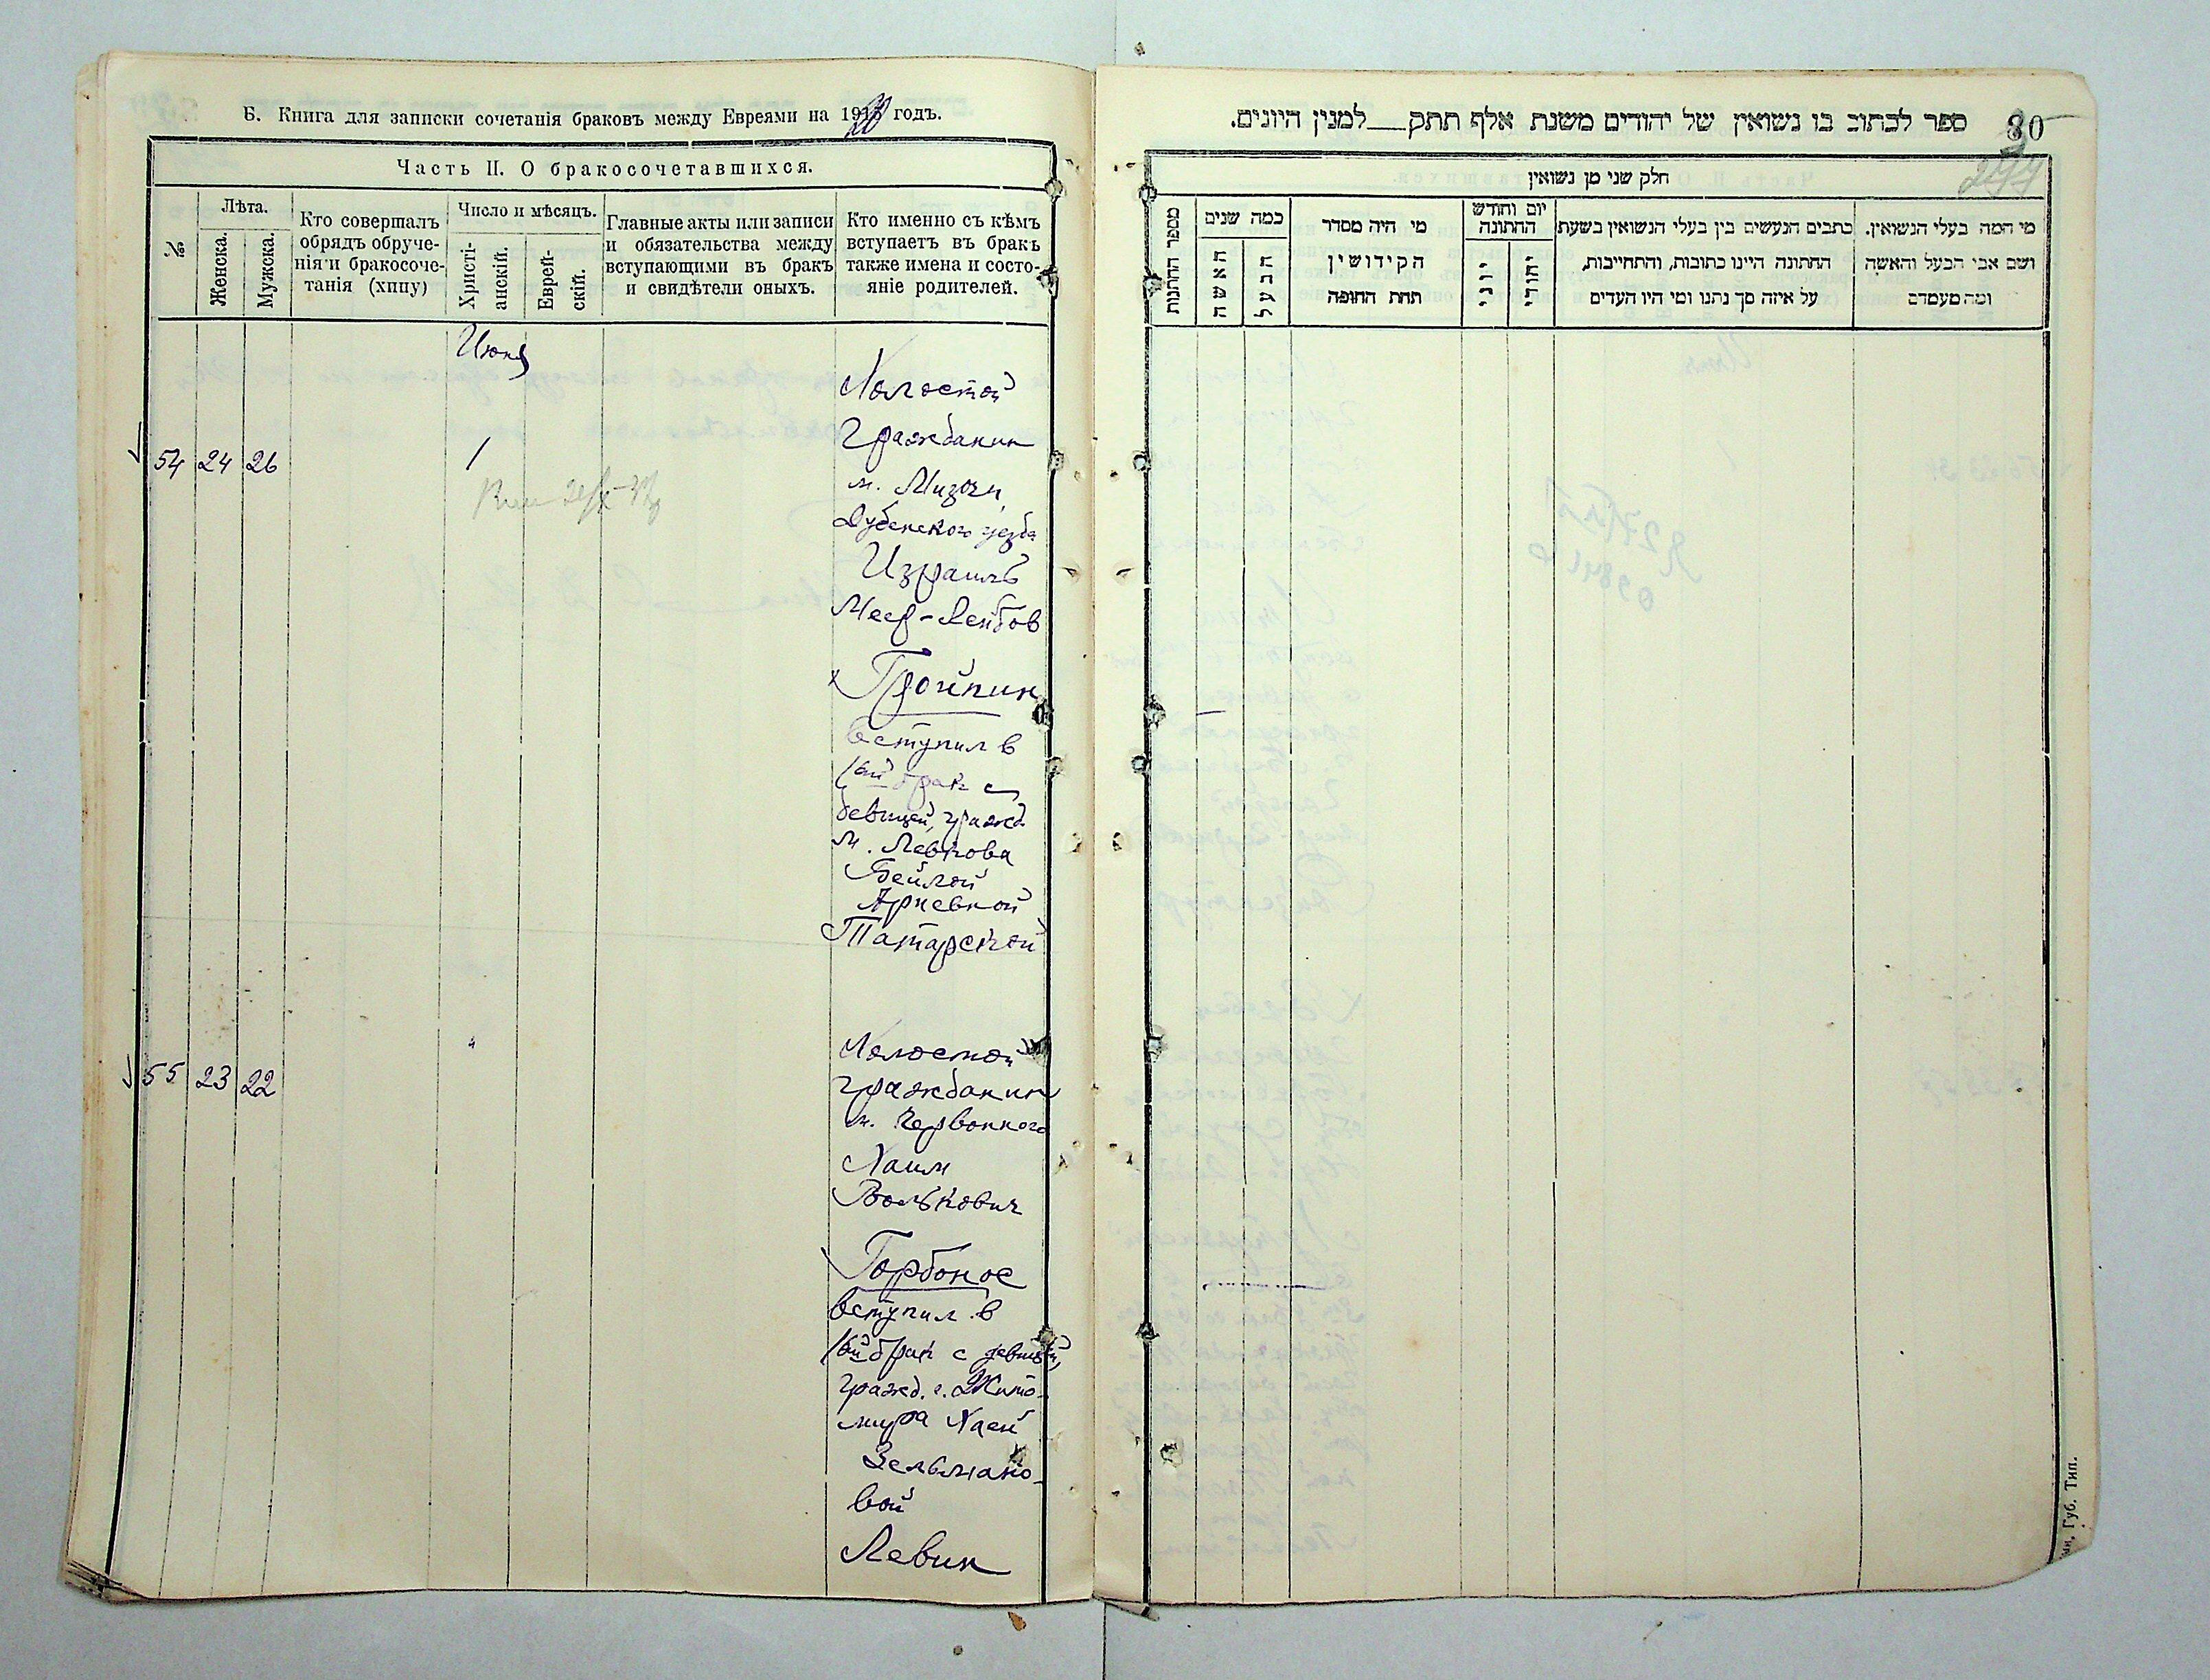 Б. Книга для записки сочетанія браковъ между Евреями на 1920 годъ.
Часть II. О бракосочетавшихся.
№
Лѣта.
Женска.
Мужска.
Кто совершалъ
обрядъ обруче-
нія и бракосоче-
танія (хипу)
Число и мѣсяцъ.
Христі-
анскій.
Еврей-
скій.
Главные акты или записи
и обязательства между
вступающими въ бракъ
и свидѣтели оныхъ.
Кто именно съ кѣмъ
вступаетъ въ бракъ
также имена и состо-
яніе родителей.
Июня
54 24 26 1
Холостой
Гражданин
м. Мизоч,
Дубенского уезда
Израиль
Меер-Лейбов
Гройпин
вступил в
1ый брак с
девицей, гражд.
м. Левкова
Бейлой
Ариевной
Татарской
55 23 22 "
Холостой
гражданин
м. Червонного
Хаим
Волькович
Горбонос
вступил в
1ый брак с девицей,
гражд. г. Жито-
мира Хаей
Зельмано-
вой
Левин
ספר לכתוב בו נשואין של יהודים משנת אלף תתק___למנין היונים.
30
חלק שני מן נשואין
מספר החתנות
כמה שנים
האשה
הבעל
מי היה מסדר
הקידושין
תחת החופה
יום וחודש
החתונה
יוני
יהודי
כתבים הנעשים בין בעלי הנשואין בשעת
החתונה היינו כתובות, והתחייבות,
על איזה סך נתנו ומי היו העדים
מי המה בעלי הנשואין.
ושם אבי הבעל והאשה
ומה מעמדם
Губ. Тип.